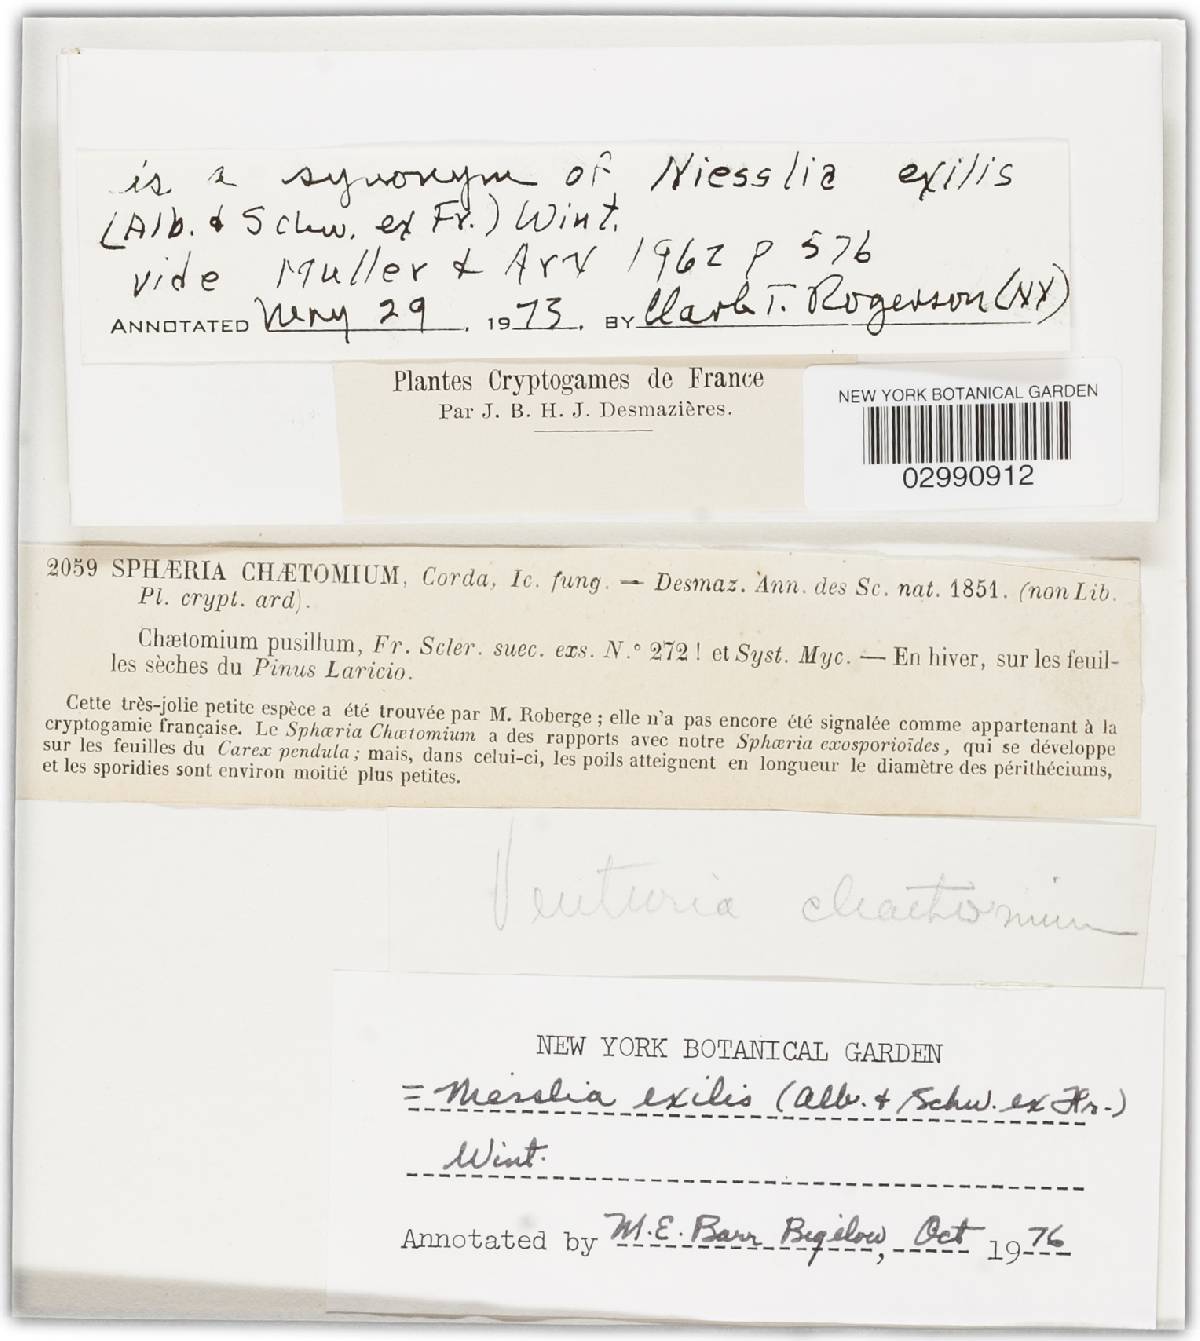 is a synonym of Niesslia exilis
(Alb. & Schw. ex Fr.) Wint.
vide Muller & Arx 1962 p 576
ANNOTATED May 29, 1973, BY Clark T. Rogerson (NY)
Plantes Cryptogames de France
Par J. B. H. J. Desmazières.
NEW YORK BOTANICAL GARDEN
02990912
2059 SPHÆRIA CHÆTOMIUM, Corda, Ic. fung. — Desmaz. Ann. des Sc. nat. 1851. (non Lib.
Pl. crypt. ard).
Chætomium pusillum, Fr. Scler. suec. exs. N.° 272! et Syst. Myc. — En hiver, sur les feuil-
les sèches du Pinus Laricio.
Cette très-jolie petite espèce a été trouvée par M. Roberge; elle n'a pas encore été signalée comme appartenant à la
cryptogamie française. Le Sphæria Chætomium a des rapports avec notre Sphæria exosporioïdes, qui se développe
sur les feuilles du Carex pendula; mais, dans celui-ci, les poils atteignent en longueur le diamètre des périthéciums,
et les sporidies sont environ moitié plus petites.
Venturia chaetomium
NEW YORK BOTANICAL GARDEN
= Niesslia exilis (Alb. & Schw. ex Fr.)
Wint.
Annotated by M.E. Barr Bigelow, Oct 1976